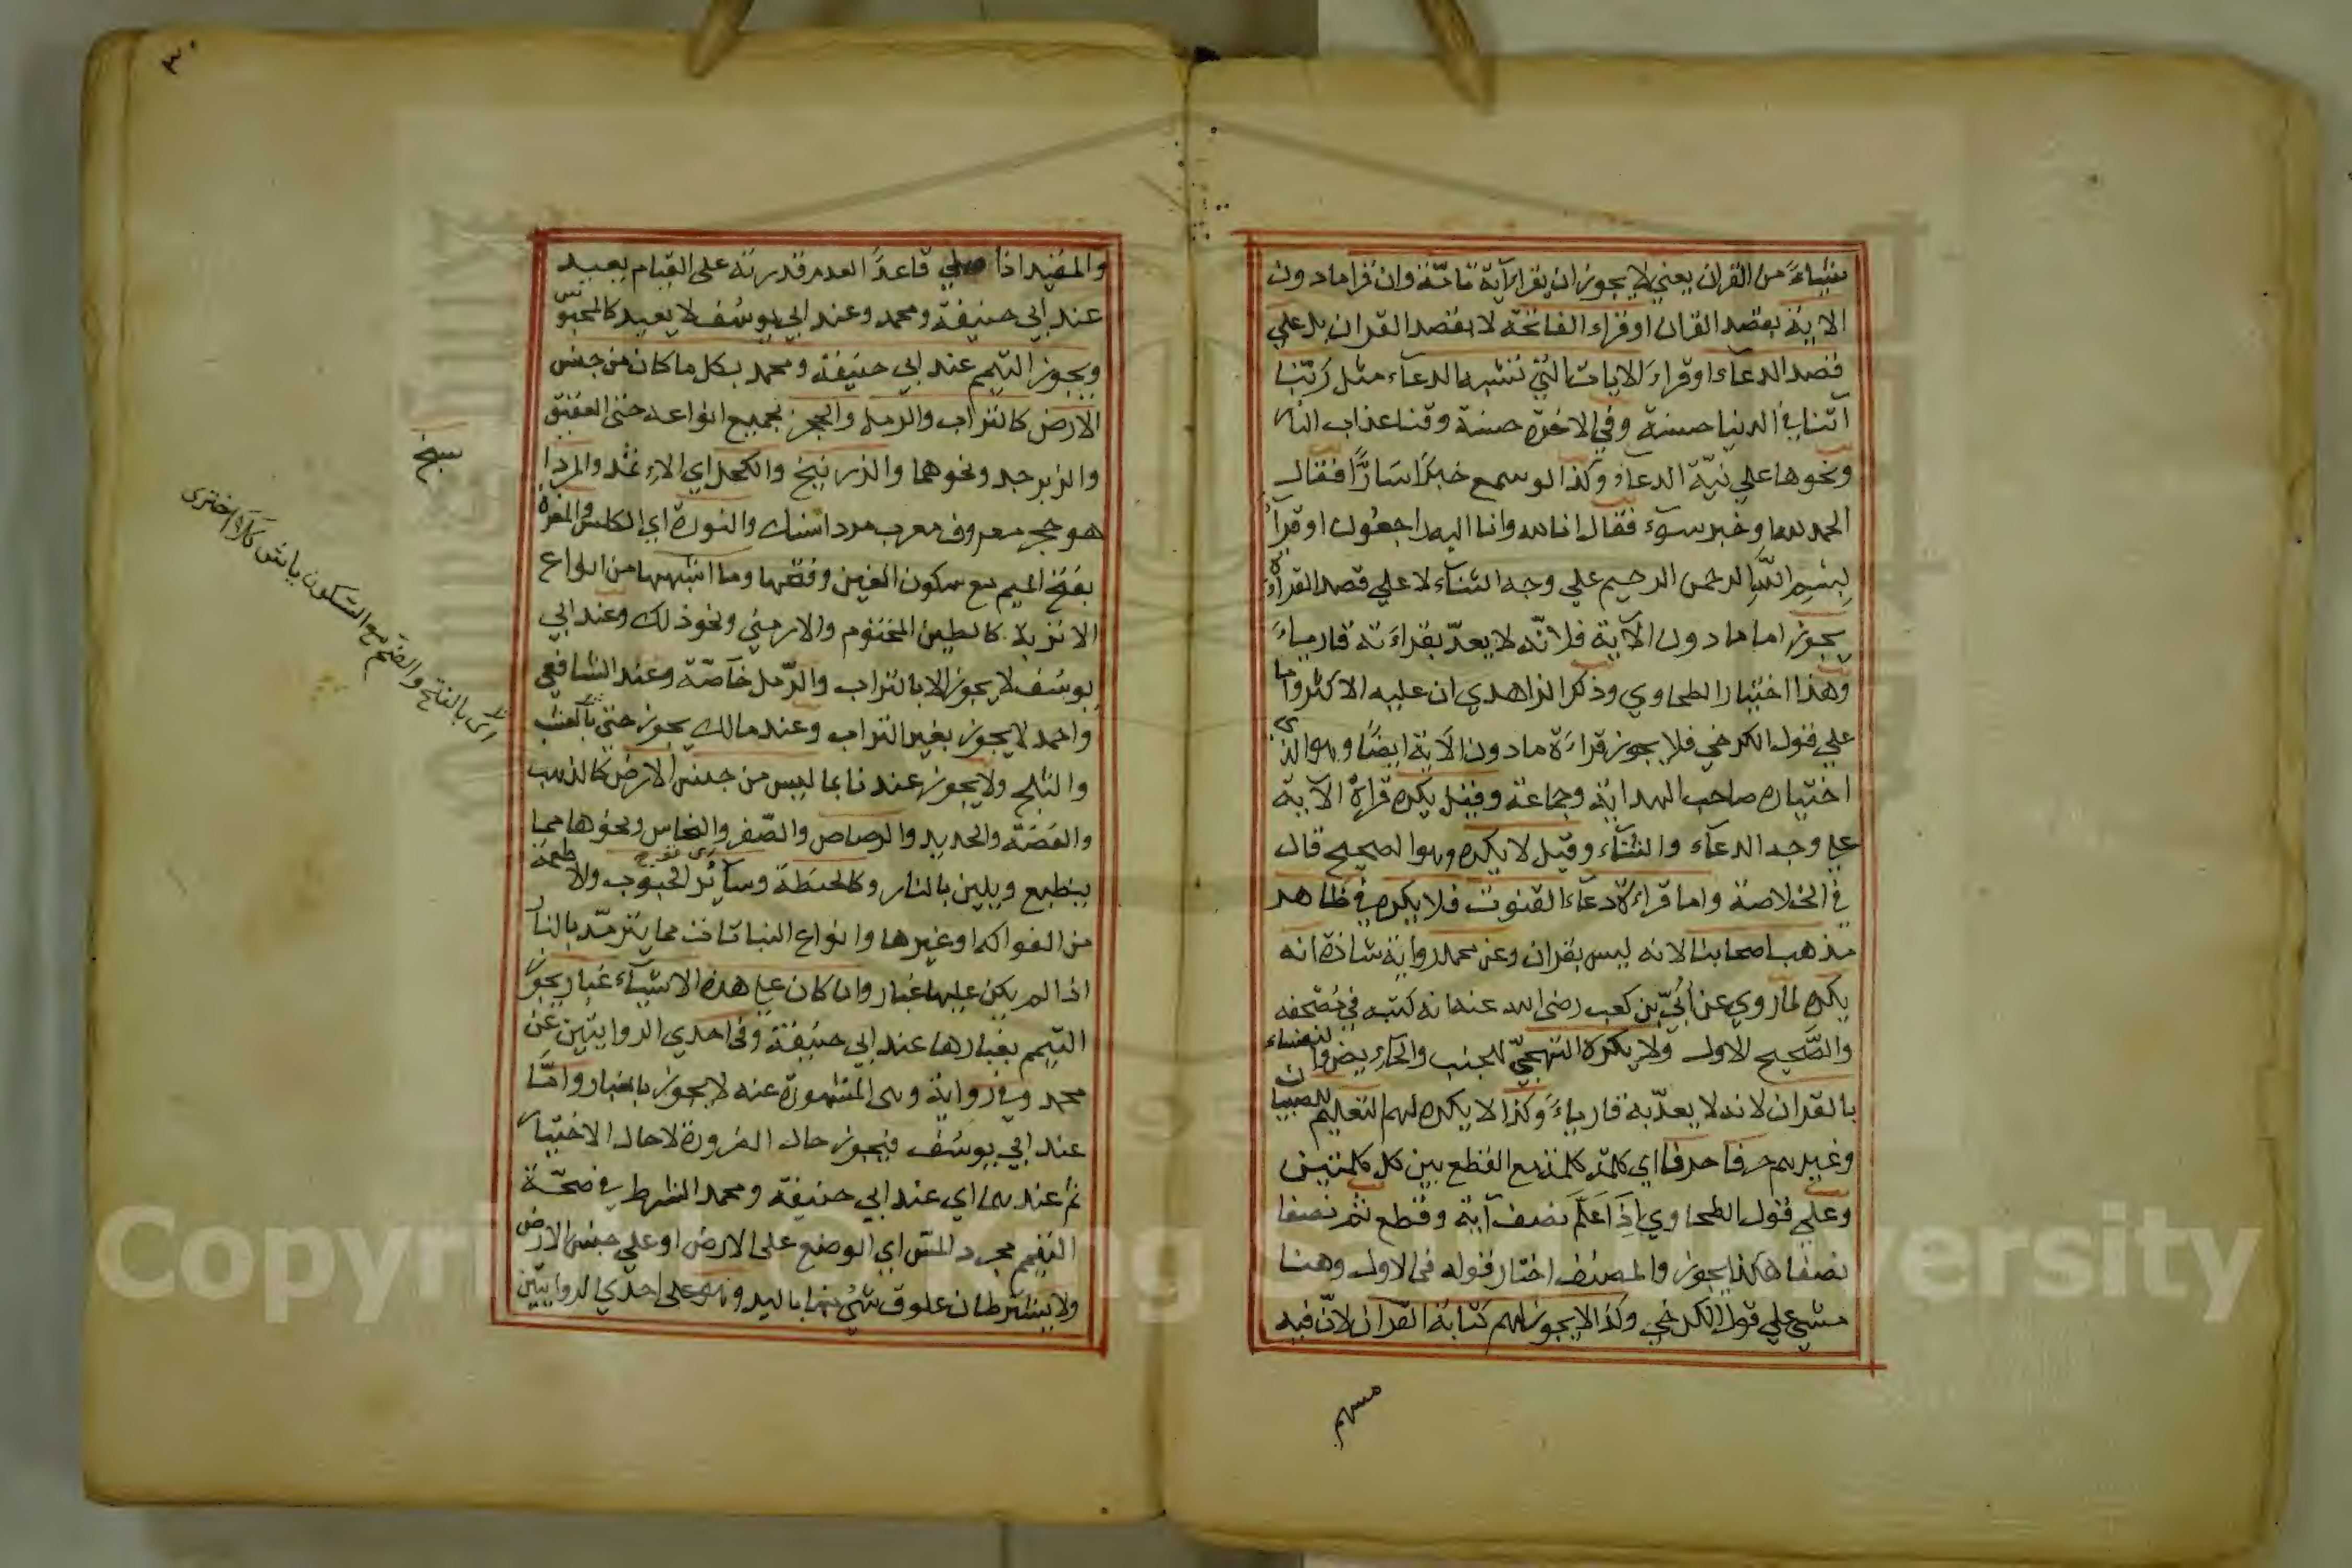 شيئاً من القران يعني لا يجوز ان يقرا اية تامّة وان قرا ما دون
الاية بقصد القران او قراء الفاتحة لا بقصد القران بل علي
قصد الدعاء او قراءَ الايات التي تشبه الدعاء مثل ربّنا
آتنا في الدنيا حسنة وفي الاخرة حسنة وقنا عذاب النار
ونحوها علي نيّة الدعاء وكذا لو سمع خبرًا سَارًّا فقال
الحمد لله او خبر سوء فقال انا لله وانا اليه راجعون او قرأ
بِسْمِ اللّٰهِ الرحمن الرحيم علي وجه الثناء لا علي قصد القراءة
يجوز اما ما دون الآية فلانّه لا يعدّ بقراءته قارياً
وهذا اختيار الطحاوي وذكر الزاهدي ان عليه الاكثر واما
علي قول الكرخي فلا يجوز قراءة ما دون الآية ايضًا وهو الذي
اختياره صاحب الهداية وجماعة وقيل يكره قراءة الآية
علي وجه الدعآء والثنآء وقيل لا يكره وهوا لصحيح قال
في الخلاصة واما قراءة دعاء القنوت فلا يكره في ظاهر
مذهب اصحابنا لانه ليس بقران وعن محمد رواية شاذة انه
يكره لما روي عن اُبيّ بن كعب رضي الله عنه انه كتبه في مُصْحفه
والصَّحيح الاول ولا يكره التهجّي للجنب والحائض والنفساء
بالقران لانه لا يعدّ به قارياءً وكذا لا يكره لهم التعليم للصبيان
وغيرهم حرفا حرفا اي كلمة كلمة مع القطع بين كل كلمتين
وعلي قول الطحاوي اِذَا عَلَّمَ نصف آية وقطع ثم نصفا
نصفا هكذا يجوز والمصنف اختار قوله في الاول وهنا
مشي علي قول الكرخي وكذا لا يجوز لهم كتابة القران لانّ فيه
مسهم
٣٠
والمقيد اذا صلي قاعدًا لعدم قدرته علي القيام يعيد
عند ابي حنيفة ومحمد وعند ابي يوسُف لا يعيد كالمحبوس
ويجوز التيمم عند ابي حنيفة ومحمد بكل ما كان من جنس
الارض كالتراب والرمل والحجر بجميع انواعه حتي العقيق
والزبرجد ونحوهما والزرنيخ والكحل اي الاِثمد والمرداسنج
هو حجر معروف معرب مرداسنك والنورة اي الكلس والمغرة
بفتح الميم مع سكون الغين وفتحها وما اشبهها من انواع
الاتربة كالطين المختوم والارمني ونحو ذلك وعند ابي
يوسُف لا يجوز الا بالتراب والرّمل خاصّة وعند الشافعي
واحمد لا يجوز بغير التراب وعند مالك يجوز حتي بالعشب
والثلج ولا يجوز عندنا بما ليس من جنس الارض كالذهب
والفضة والحديد والرصاص والصّفر والنحاس ونحوها مما
ينطبع ويلين بالنار وكالحنطة وسآئر الحبوب ولاطعمة
من الفواكه وغيرها وانواع النباتات مما يترمّد بالنار
اذا لم يكن عليها غبار وان كان علي هذه الاشيآء غبار يجوز
التيمم بغبارها عند ابي حنيفة وفي احدي الروايتين عن
محمد وفي رواية وهي المشهورة عنه لا يجوز بالغبار وامّا
عند ابي يوسُف فيجوز حال الضرورة لا حال الاختيار
ثم عندهما اي عند ابي حنيفة ومحمد الشرط في صحّة
التيمم مجرد المسّ اي الوضع علي الارض او علي جنس الارض
ولا يشترط ان علوق شئ منها باليد وهو علي احدي الروايتين
سنج
بالفتح والضم مع السكون ياش